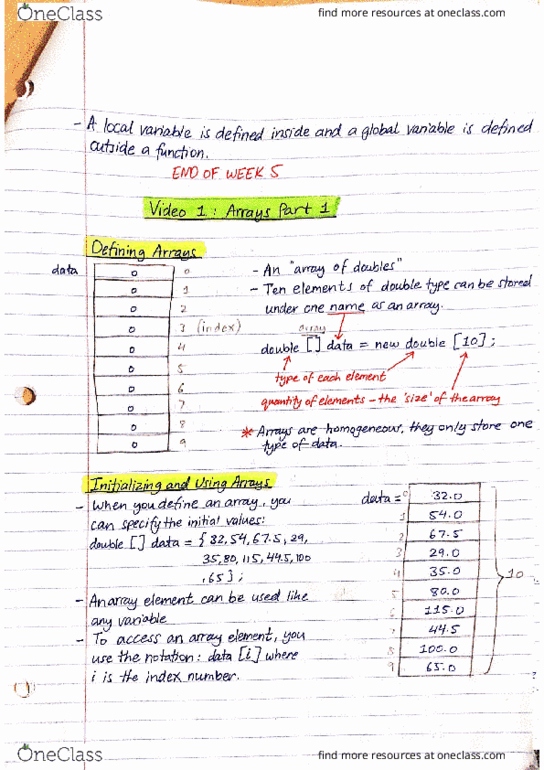 OneClass
find more resources at oneclass.com
- A local variable is defined inside and a global variable is defined
outside a function.
END OF WEEK 5
Video 1: Arrays Part 1
Defining Arrays
data
0 0
0 1
0 2
0 3 (index)
0 4
0 5
0 6
0 7
0 8
0 9
- An "array of doubles"
- Ten elements of double type can be stored
under one name as an array.
array
double [] data = new double [10];
type of each element
quantity of elements - the 'size' of the array
* Arrays are homogeneous, they only store one
type of data.
Initializing and Using Arrays
- When you define an array, you
can specify the initial values:
double [] data = {32, 54, 67.5, 29,
35, 80, 115, 44.5, 100
, 65};
- An array element can be used like
any variable
- To access an array element, you
use the notation: data [i] where
i is the index number.
data = 0 32.0
1 54.0
2 67.5
3 29.0
4 35.0
5 80.0
6 115.0
7 44.5
8 100.0
9 65.0
10
OneClass
find more resources at oneclass.com